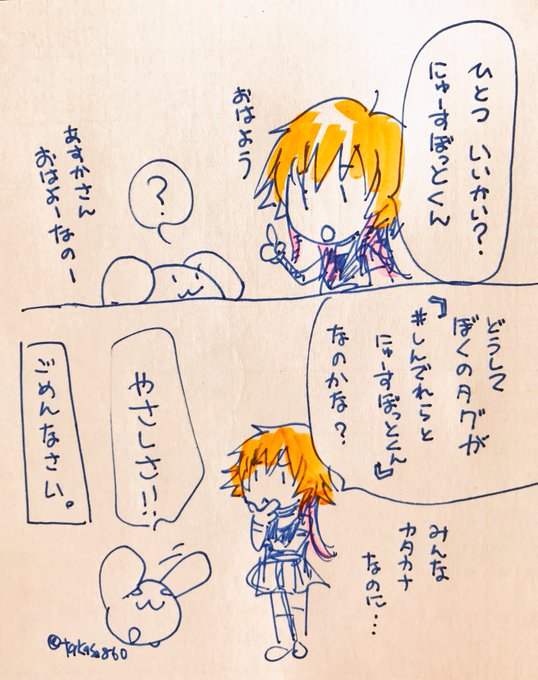 ひとつ いいかい?
にゅーすぼっとくん
おはよう
?
あすかさん
おはよーなのー
どうして
ぼくのタグが
『#しんでれらと
にゅーすぼっとくん』
なのかな?
みんな
カタカナ
なのに…
やさしさ!!
ごめんなさい。
@takasa860